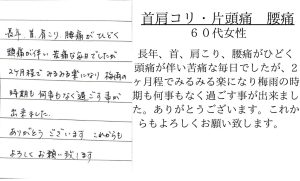 長年、首、肩こり、腰痛がひどく
頭痛が伴い苦痛な毎日でしたが
2ヶ月程でみるみる楽になり梅雨の
時期も何事もなく過ごす事が
出来ました。
ありがとうございます これからも
よろしくお願い致します
首肩コリ・片頭痛　腰痛
６０代女性
長年、首、肩こり、腰痛がひどく
頭痛が伴い苦痛な毎日でしたが、2
ヶ月程でみるみる楽になり梅雨の時
期も何事もなく過ごす事が出来まし
た。ありがとうございます。これか
らもよろしくお願い致します。